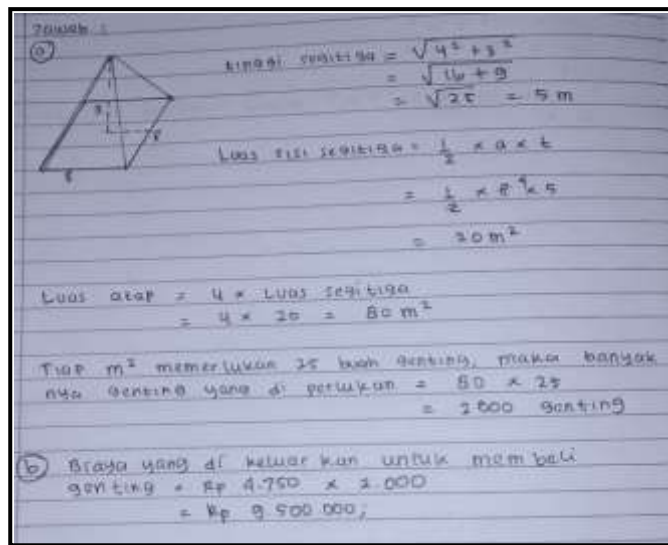 Jawab :
(a)
tinggi segitiga = √4² + 3²
= √16 + 9
= √25 = 5 m
3
8
8
Luas sisi segitiga = 1/2 × a × t
= 1/2 × 8 4 × 5
= 20 m²
Luas atap = 4 × Luas segitiga
= 4 × 20 = 80 m²
Tiap m² memerlukan 25 buah genting, maka banyak
nya genting yang di perlukan = 80 × 25
= 2000 genting
(b) Biaya yang di keluar kan untuk mem beli
genting = Rp 4.750 × 2.000
= Rp 9 500 000;